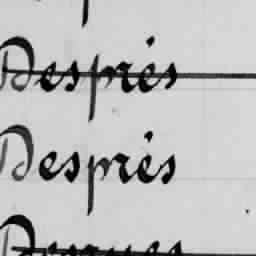 Després
Després